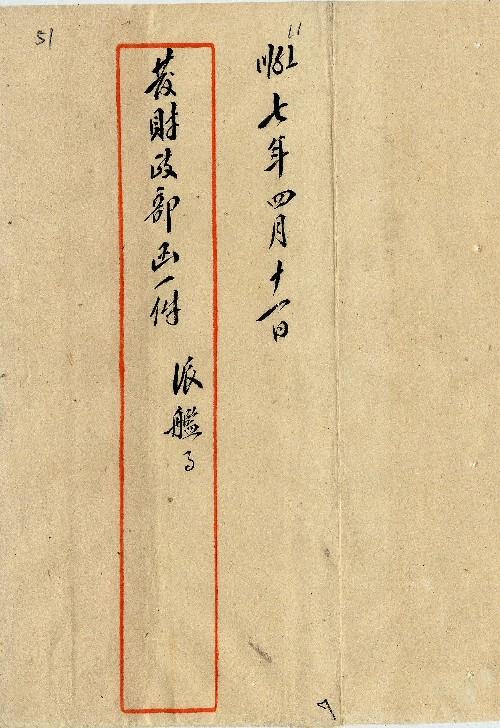 51
11
七年四月十一日
發財政部函一件
派艦事